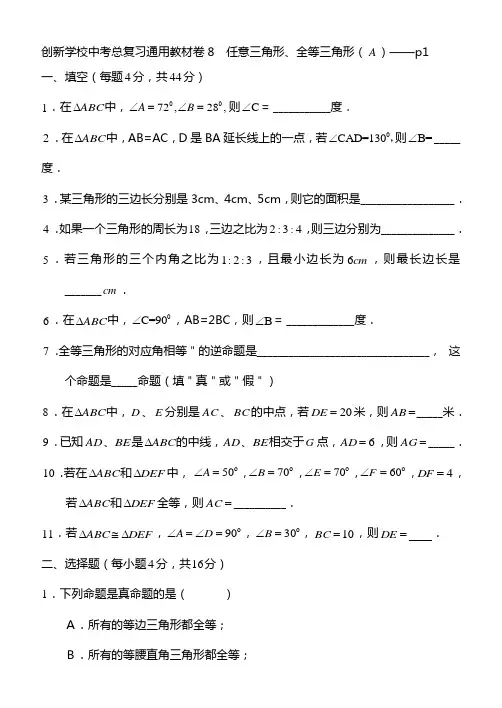 创新学校中考总复习通用教材卷8　任意三角形、全等三角形（A）——p1
一、填空（每题4分，共44分）
1．在ΔABC中，∠A＝72⁰,∠B＝28⁰,则∠C＝___________度．
2．在ΔABC中，AB=AC，D是BA延长线上的一点，若∠CAD=130⁰,则∠B=_____
度．
3．某三角形的三边长分别是3cm、4cm、5cm，则它的面积是__________________．
4．如果一个三角形的周长为18，三边之比为2:3:4，则三边分别为______________．
5．若三角形的三个内角之比为1:2:3，且最小边长为6cm，则最长边长是
_______cm．
6．在ΔABC中，∠C=90⁰，AB=2BC，则∠B＝_____________度．
7．全等三角形的对应角相等＂的逆命题是_________________________________，　这
个命题是_____命题（填＂真＂或＂假＂）
8．在ΔABC中，D、E分别是AC、BC的中点，若DE＝20米，则AB＝_____米．
9．已知AD、BE是ΔABC的中线，AD、BE相交于G点，AD＝6，则AG＝_____．
10．若在ΔABC和ΔDEF中，∠A＝50⁰，∠B＝70⁰，∠E＝70⁰，∠F＝60⁰，DF＝4，
若ΔABC和ΔDEF全等，则AC＝__________．
11．若ΔABC≅ΔDEF，∠A＝∠D＝90⁰，∠B＝30⁰，BC＝10，则DE＝____．
二、选择题（每小题4分，共16分）
1．下列命题是真命题的是（　　　　）
A．所有的等边三角形都全等；
B．所有的等腰直角三角形都全等；